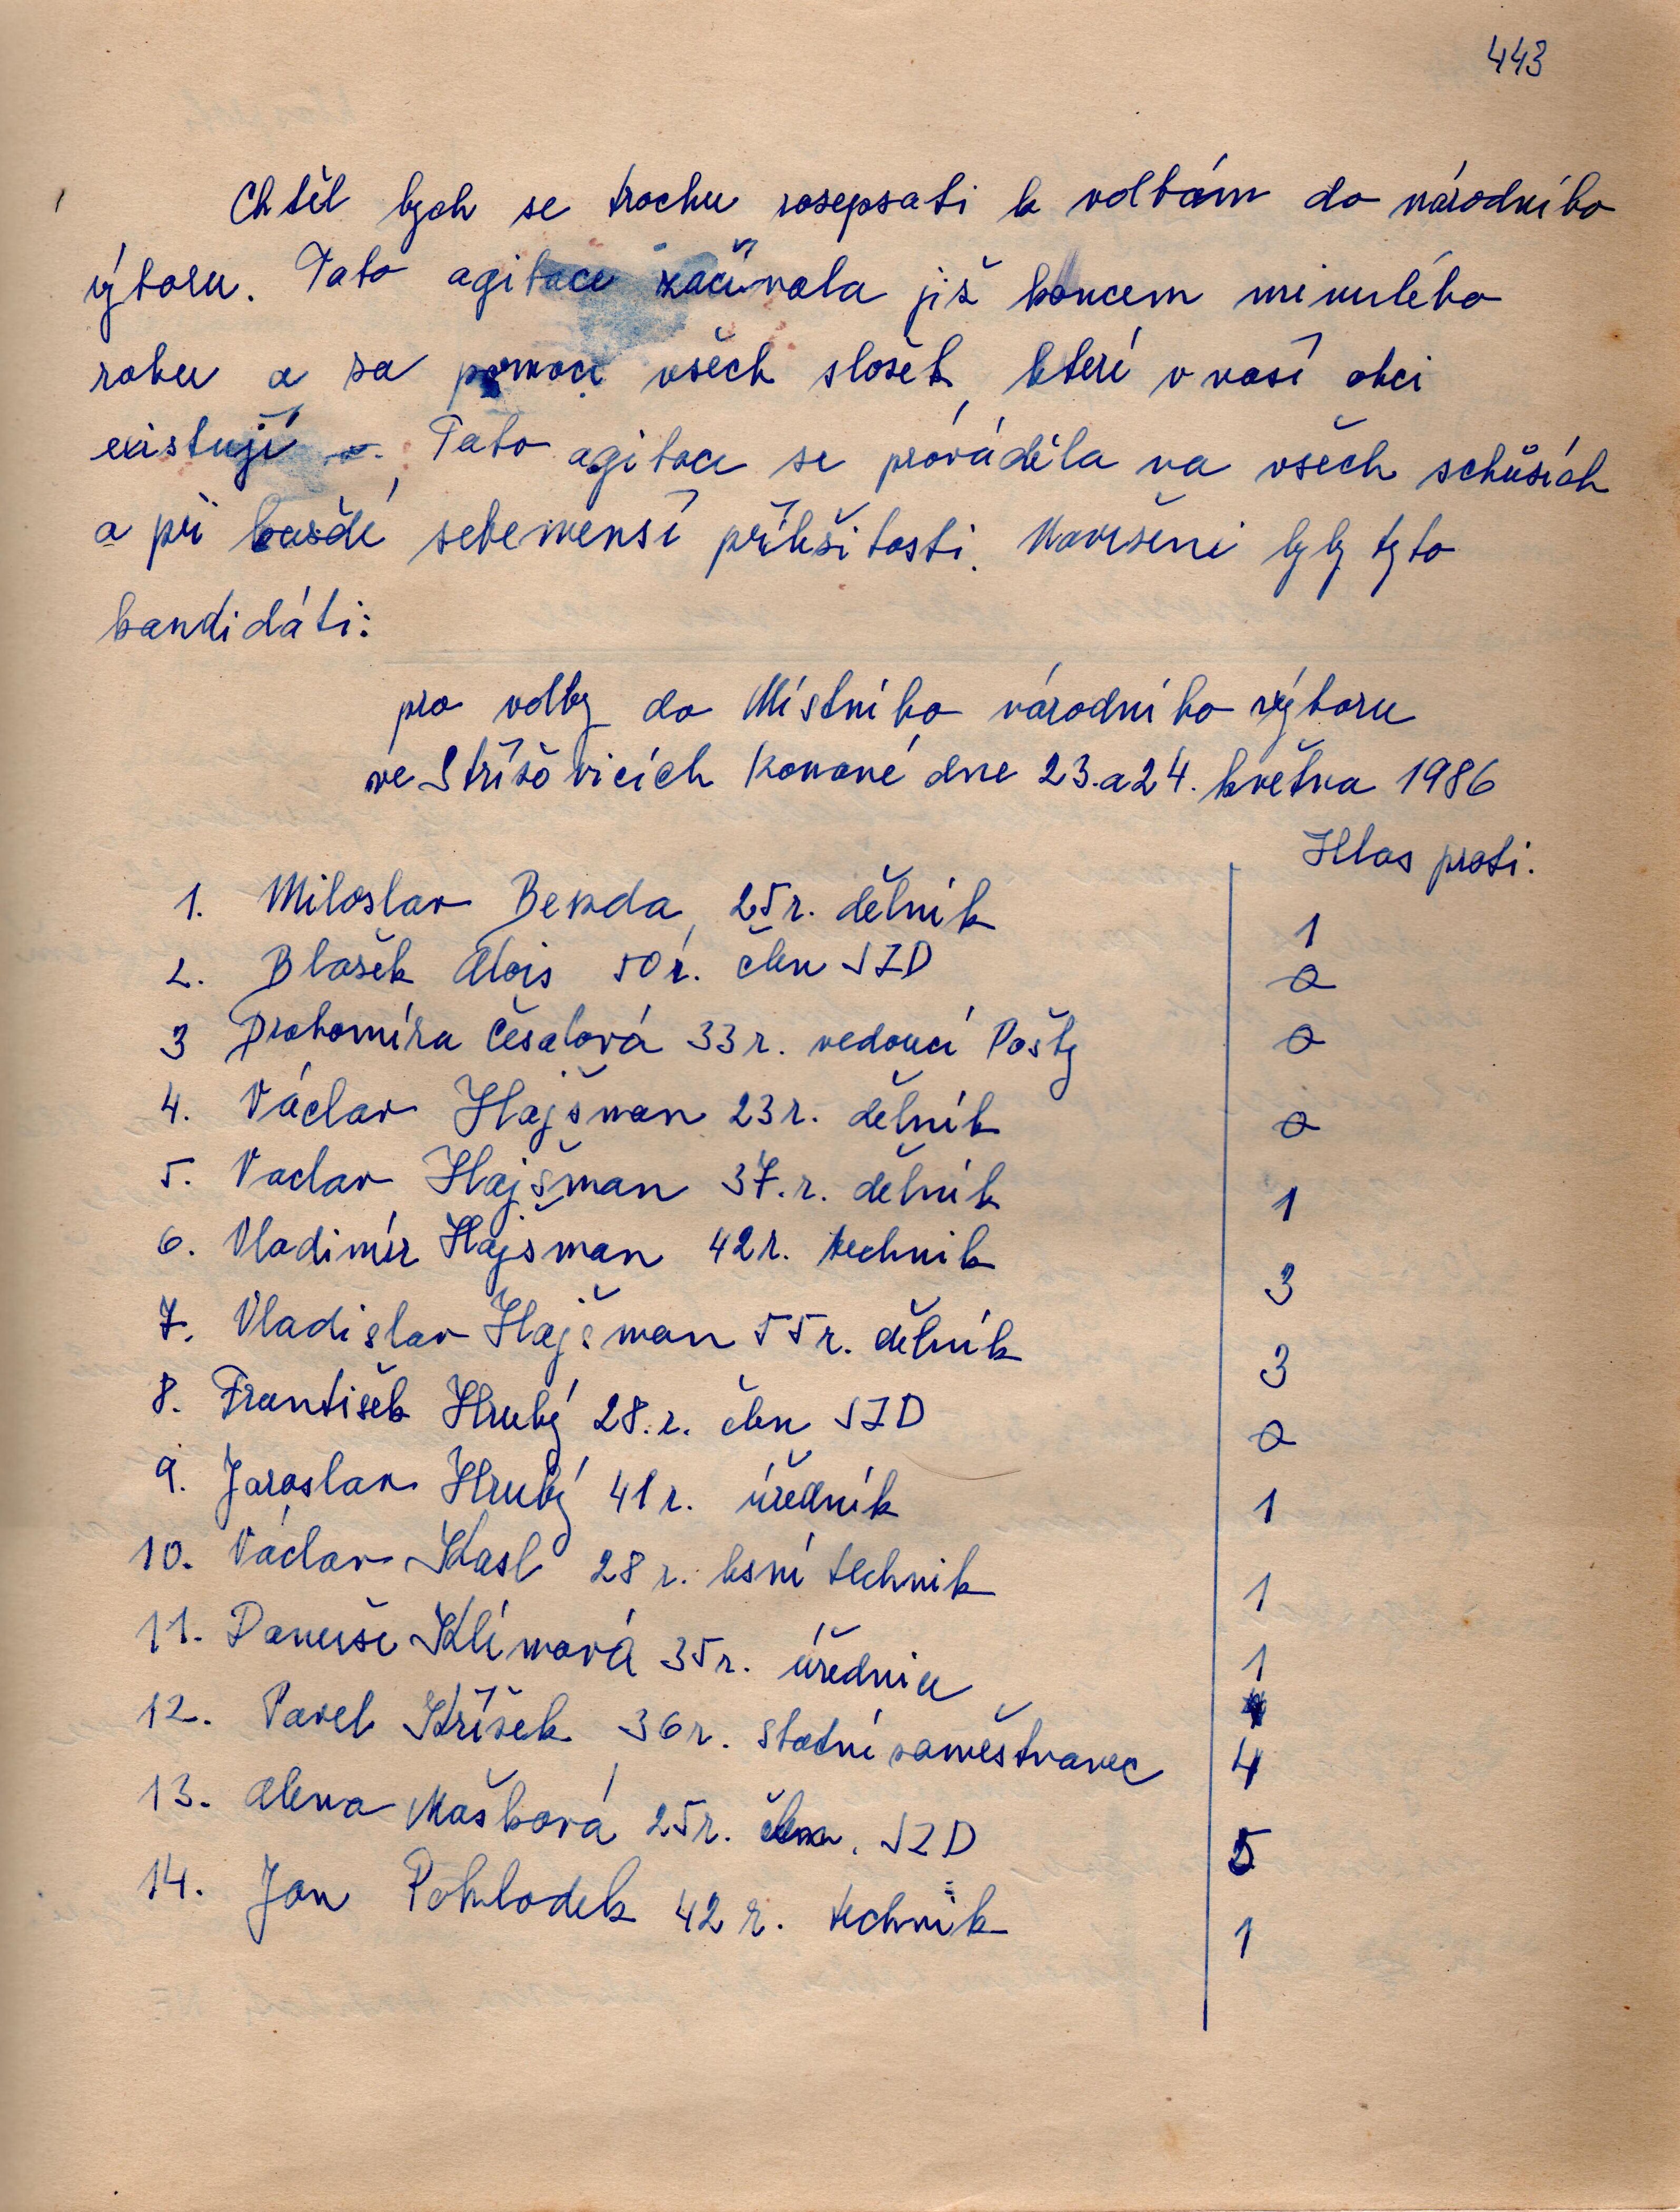 443
Chtěl bych se trochu rosepsati k volbám do národního
výboru. Tato agitace začínala již koncem minulého
roku a za pomoci všech složek, které v naší obci
existují. Tato agitace se prováděla na všech schůsích
a při každé sebemenší příležitosti. Navrženi byly tyto
kandidáti:
pro volby do Místního národního výboru
ve Střížovicích konané dne 23. a 24. května 1986
Hlas proti.
1. Miloslav Benda, 25 r. dělník 1
2. Blažek Alois 50 r. člen JZD 0
3 Drahomíra Česalová 33 r. vedoucí Pošty 0
4. Václav Hajšman 23 r. dělník 0
5. Vaclav Hajšman 37. r. dělník 1
6. Vladimír Hajšman 42 r. technik 3
7. Vladislav Hajšman 55 r. dělník 3
8. František Hrubý 28. r. člen JZD 0
9. Jaroslav Hrubý 41 r. úředník 1
10. Václav Kasl 28 r. lesní technik 1
11. Danuše Klímová 35 r. úřednice 1
12. Pavel Křížek 36 r. statní zaměstnanec 4
13. Alena Mašková 25 r. člen. JZD 5
14. Jan Pohlodek 42 r. technik 1